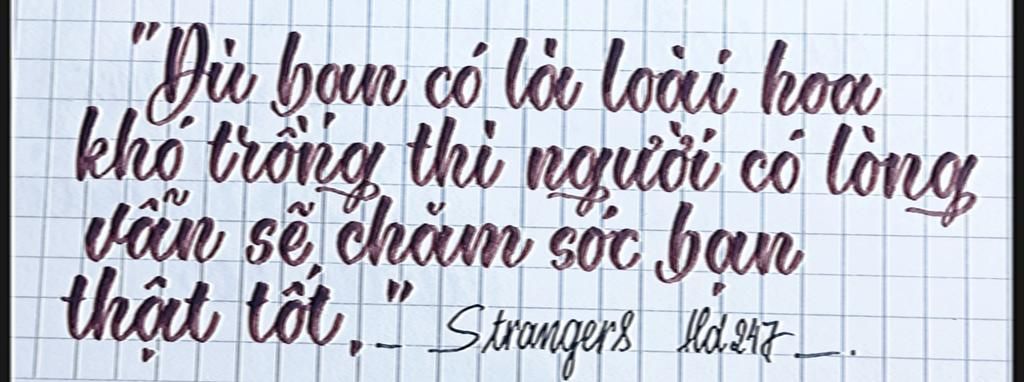 "Dù bạn có là loài hoa
khó trồng thì người có lòng
vẫn sẽ chăm sóc bạn
thật tốt." _ Strangers Hd247_.